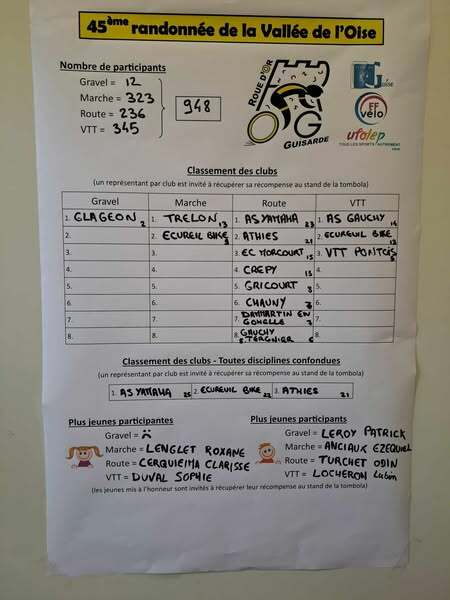 45ème randonnée de la Vallée de l'Oise
Nombre de participants
Gravel = 12
Marche = 323
Route = 236
VTT = 345
948
ROUE D'OR
GUISARDE
Oise
FF vélo
ufolep
TOUS LES SPORTS AUTREMENT
Classement des clubs
(un représentant par club est invité à récupérer sa récompense au stand de la tombola)
Gravel Marche Route VTT
1. GLAGEON 2 1. TRELON 13 1. AS YAMAHA 23 1. AS GAUCHY 14
2. 2. ECUREIL BIKE 2. ATHIES 21 2. ECUREUIL BIKE
3. 3. 3. EC MORCOURT 15 3. VTT PONTCHS
4. 4. 4. CREPY 13 4.
5. 5. 5. GRICOURT 5.
6. 6. 6. CHAUNY 7 6.
7. 7. 7. DAMMARTIN EN GOHELLE 7 7.
8. 8. 8. GAUCHY TERGNIER 8.
Classement des clubs - Toutes disciplines confondues
(un représentant par club est invité à récupérer sa récompense au stand de la tombola)
1. AS YAMAHA 25 2. ECUREUIL BIKE 22 3. ATHIES 21
Plus jeunes participantes
Gravel =
Marche = LENGLET ROXANE
Route = CERQUIEIMA CLARISSE
VTT = DUVAL SOPHIE
Plus jeunes participants
Gravel = LEROY PATRICK
Marche = ANCIAUX EZEQUIEL
Route = TURCHET ODIN
VTT = LOCHERON
(les jeunes mis à l'honneur sont invités à récupérer leur récompense au stand de la tombola)